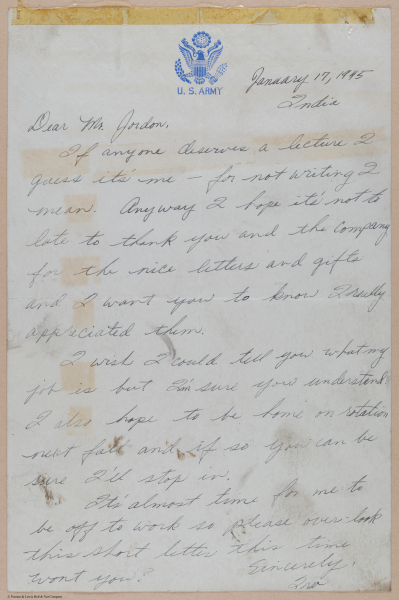 U.S. ARMY
January 17, 1945
India
Dear Mr. Jordon,
If anyone deserves a lecture I
guess it's me – for not writing I
mean. Anyway I hope it's not to
late to thank you and the company
for the nice letters and gifts
and I want you to know I really
appreciated them.
I wish I could tell you what my
job is but I'm sure you understand.
I also hope to be home on rotation
next fall and if so you can be
sure I'll stop in.
It's almost time for me to
be off to work so please over-look
this short letter this time
wont you?
Sincerely,